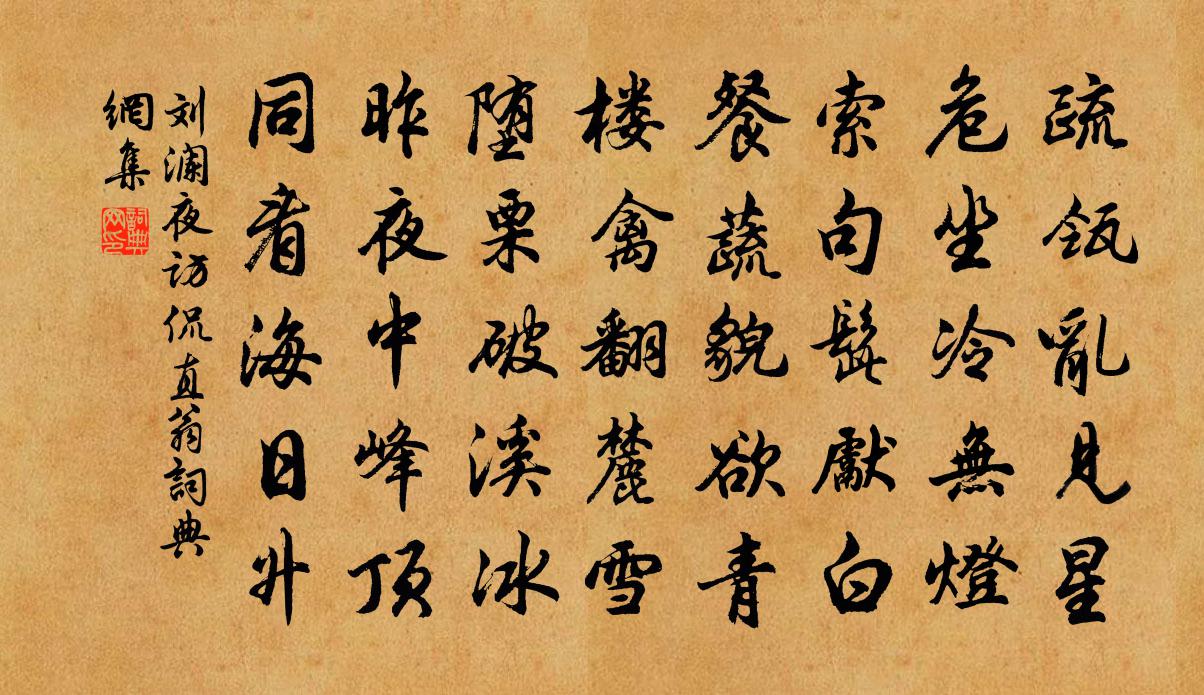 疏瓴亂见星
危坐冷無燈
索句髭獻白
餐蔬貌欲青
楼禽翻麓雪
堕栗破溪冰
昨夜中峰顶
同看海日升
刘澜夜访侃直翁詞典
網集
詞典網印